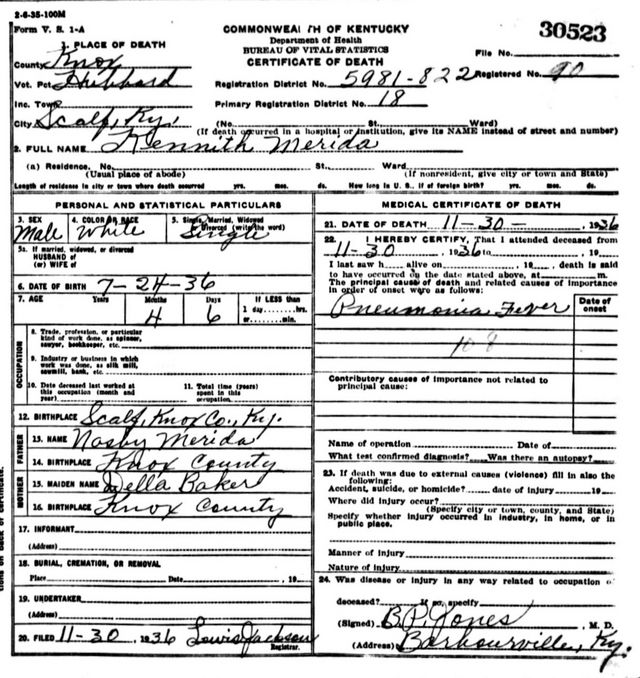 2-6-35-100M
Form V. S. 1-A
COMMONWEALTH OF KENTUCKY
Department of Health
BUREAU OF VITAL STATISTICS
CERTIFICATE OF DEATH
30523
File No.
1. PLACE OF DEATH
County Knox
Vot. Pct. Hubbard
Registration District No. 5981-822 Registered No. 90
Inc. Town
Primary Registration District No. 18
City Scalf, Ky. (No. St. Ward)
(If death occurred in a hospital or institution, give its NAME instead of street and number)
2. FULL NAME Kennith Merida
(a) Residence, No. St. Ward
(Usual place of abode) (If nonresident, give city or town and State)
Length of residence in city or town where death occurred yrs. mos. ds. How long in U. S., if of foreign birth? yrs. mos. ds.
PERSONAL AND STATISTICAL PARTICULARS
3. SEX 4. COLOR OR RACE 5. Single, Married, Widowed
or Divorced (write the word)
Male White Single
5a. If married, widowed, or divorced
HUSBAND OF
(or) WIFE of
6. DATE OF BIRTH 7-24-36
7. AGE Years Months Days If LESS than
4 6 1 day hrs.
or min.
OCCUPATION
8. Trade, profession, or particular
kind of work done, as spinner,
sawyer, bookkeeper, etc.
9. Industry or business in which
work was done, as silk mill,
sawmill, bank, etc.
10. Date deceased last worked at
this occupation (month and
year)
11. Total time (years)
spent in this
occupation
12. BIRTHPLACE Scalf, Knox Co., Ky.
FATHER
13. NAME Nasby Merida
14. BIRTHPLACE Knox County
MOTHER
15. MAIDEN NAME Della Baker
16. BIRTHPLACE Knox County
17. INFORMANT
(Address)
18. BURIAL, CREMATION, OR REMOVAL
Place Date 19
19. UNDERTAKER
(Address)
20. FILED 11-30 1936 Lewis Jackson
Registrar.
MEDICAL CERTIFICATE OF DEATH
21. DATE OF DEATH 11-30- , 1936
22. I HEREBY CERTIFY, That I attended deceased from
11-30 , 1936 to , 19
I last saw h alive on , 19 , death is said
to have occurred on the date stated above, at m.
The principal cause of death and related causes of importance
in order of onset were as follows:
Date of
onset
Pneumonia Fever
108
Contributory causes of importance not related to
principal cause:
Name of operation Date of
What test confirmed diagnosis? Was there an autopsy?
23. If death was due to external causes (violence) fill in also the
following:
Accident, suicide, or homicide? date of injury 19
Where did injury occur?
(Specify city or town, county, and State)
Specify whether injury occurred in industry, in home, or in
public place.
Manner of injury
Nature of injury
24. Was disease or injury in any way related to occupation of
deceased? If so, specify
(Signed) B.P. Jones , M. D.
(Address) Barbourville, Ky.